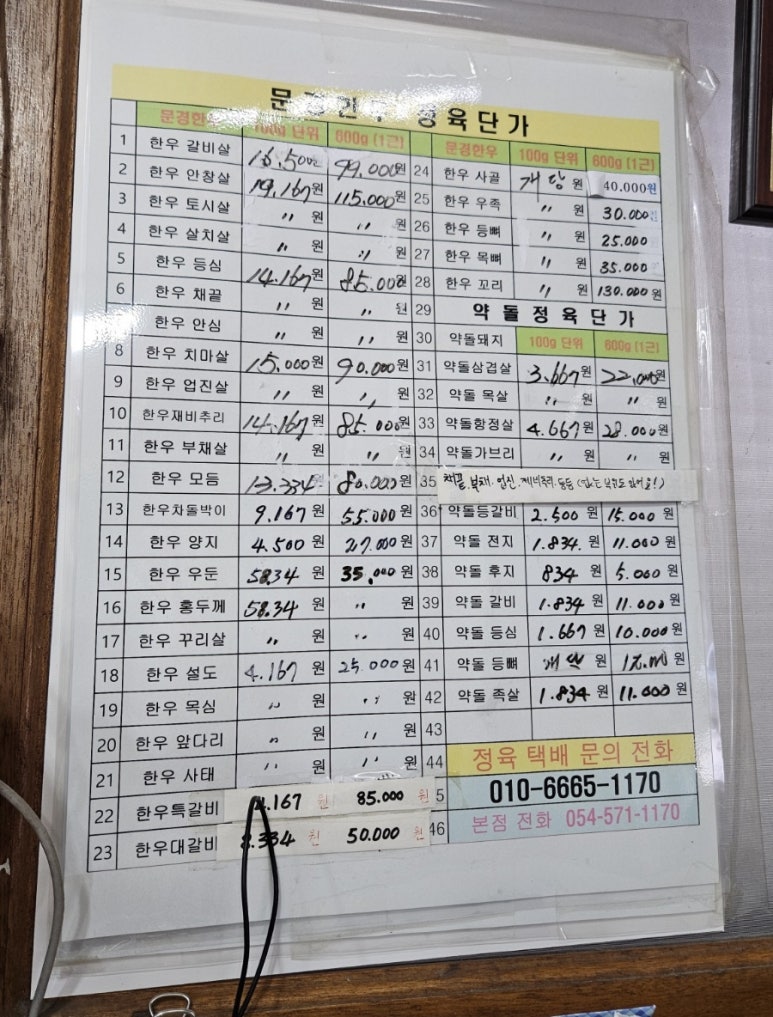 문경한우 정육단가
문경한우 100g 단위 600g (1근)
1 한우 갈비살 16.500원 99.000원
2 한우 안창살 19.167원 115.000원
3 한우 토시살 〃 원 〃 원
4 한우 살치살 〃 원 〃 원
5 한우 등심 14.167원 85.000원
6 한우 채끝 〃 원 〃 원
한우 안심 〃 원 〃 원
8 한우 치마살 15.000원 90.000원
9 한우 업진살 〃 원 〃 원
10 한우재비추리 14.167원 85.000원
11 한우 부채살 〃 원 〃 원
12 한우 모듬 13.334원 80.000원
13 한우차돌박이 9.167원 55.000원
14 한우 양지 4.500원 27.000원
15 한우 우둔 58.34원 35.000원
16 한우 홍두께 58.34원 〃 원
17 한우 꾸리살 〃 원 〃 원
18 한우 설도 4.167원 25.000원
19 한우 목심 〃 원 〃 원
20 한우 앞다리 〃 원 〃 원
21 한우 사태 〃 원 〃 원
22 한우특갈비 4.167 원 85.000 원
23 한우대갈비 8.334 원 50.000 원
문경한우 100g 단위 600g (1근)
24 한우 사골 개당 원 40.000원
25 한우 우족 〃 원 30.000원
26 한우 등뼈 〃 원 25.000
27 한우 목뼈 〃 원 35.000
28 한우 꼬리 〃 원 130.000원
29 약돌정육단가
30 약돌돼지 100g 단위 600g (1근)
31 약돌삼겹살 3.667원 22.000원
32 약돌 목살 〃 원 〃 원
33 약돌항정살 4.667원 28.000원
34 약돌가브리 〃 원 〃 원
35 채끝.부채.업진.제비추리.등등
36 약돌등갈비 2.500원 15.000원
37 약돌 전지 1.834.원 11.000원
38 약돌 후지 834원 5.000원
39 약돌 갈비 1.834원 11.000원
40 약돌 등심 1.667원 10.000원
41 약돌 등뼈 개당 원 원
42 약돌 족살 1.834원 11.000원
43
44
5
46
정육 택배 문의 전화
010-6665-1170
본점 전화 054-571-1170